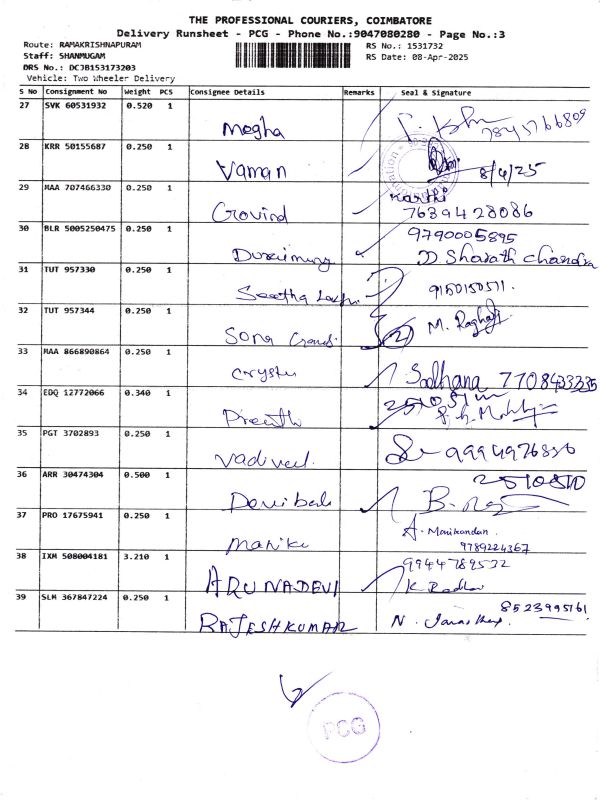 THE PROFESSIONAL COURIERS, COIMBATORE
Delivery Runsheet - PCG - Phone No.:9047080280 - Page No.:3
Route: RAMAKRISHNAPURAM
RS No.: 1531732
Staff: SHANMUGAM
RS Date: 08-Apr-2025
DRS No.: DCJB153173203
Vehicle: Two Wheeler Delivery
S No Consignment No Weight PCS Consignee Details Remarks Seal & Signature
27 SVK 60531932 0.520 1 Megha
28 KRR 50155687 0.250 1 Vaman 8/4/25
29 MAA 707466330 0.250 1 Govind Karthi 7639428086
30 BLR 5005250475 0.250 1 9790005895
D. Sharath Chandra
31 TUT 957330 0.250 1 Seetha 9150150511.
32 TUT 957344 0.250 1 Sona 2 M.
33 MAA 866890864 0.250 1 Sadhana
34 EDQ 12772066 0.340 1 Preethi
35 PGT 3702893 0.250 1 Vadivel.
36 ARR 30474304 0.500 1 2510510
37 PRO 17675941 0.250 1 A. Manikandan
9789224367
38 IXM 508004181 3.210 1 ARUNADEVI 9944789532
K.
39 SLM 367847224 0.250 1 RAJESHKUMAR N.
PCG